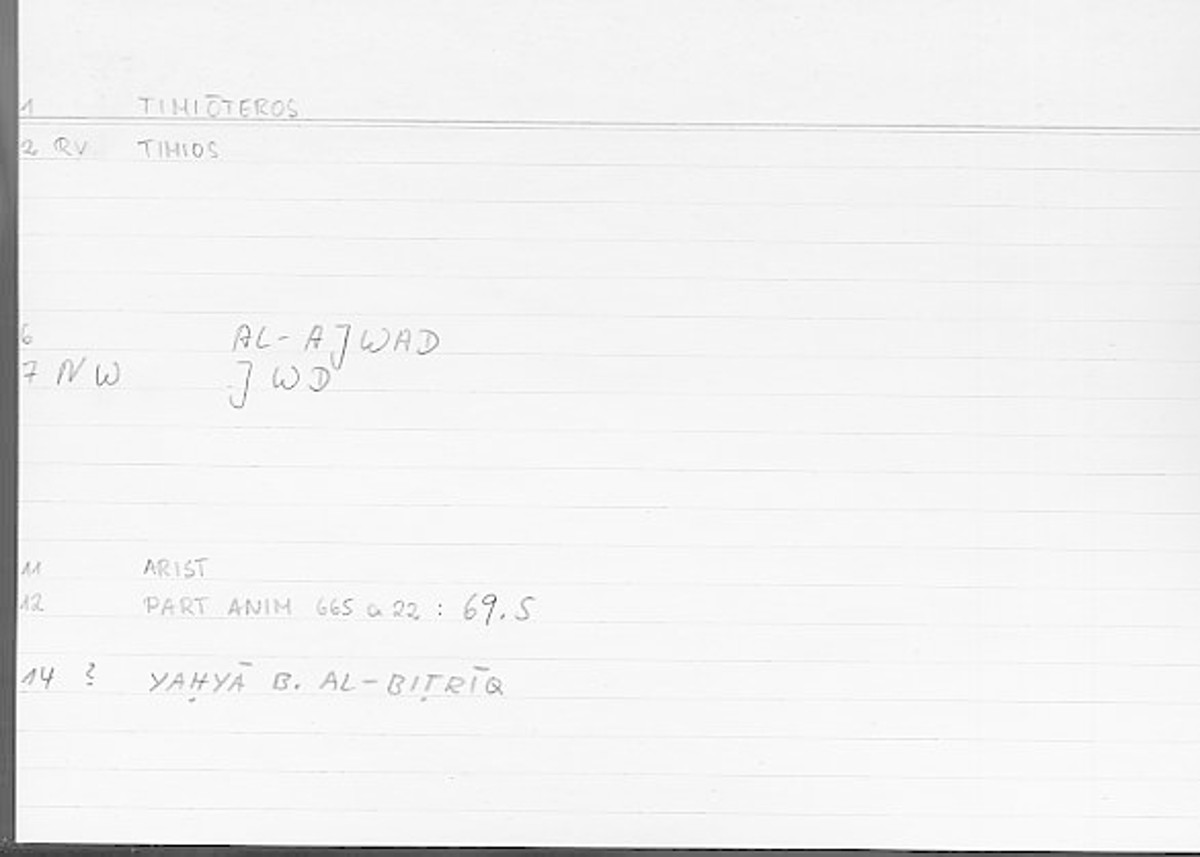 1 TIMIŌTEROS
2 RV TIMIOS
6 AL-AJWAD
7 NW JWD
11 ARIST
12 PART ANIM 665 a 22 : 69.5
14 ? YAḤYĀ B. AL-BIṬRĪQ